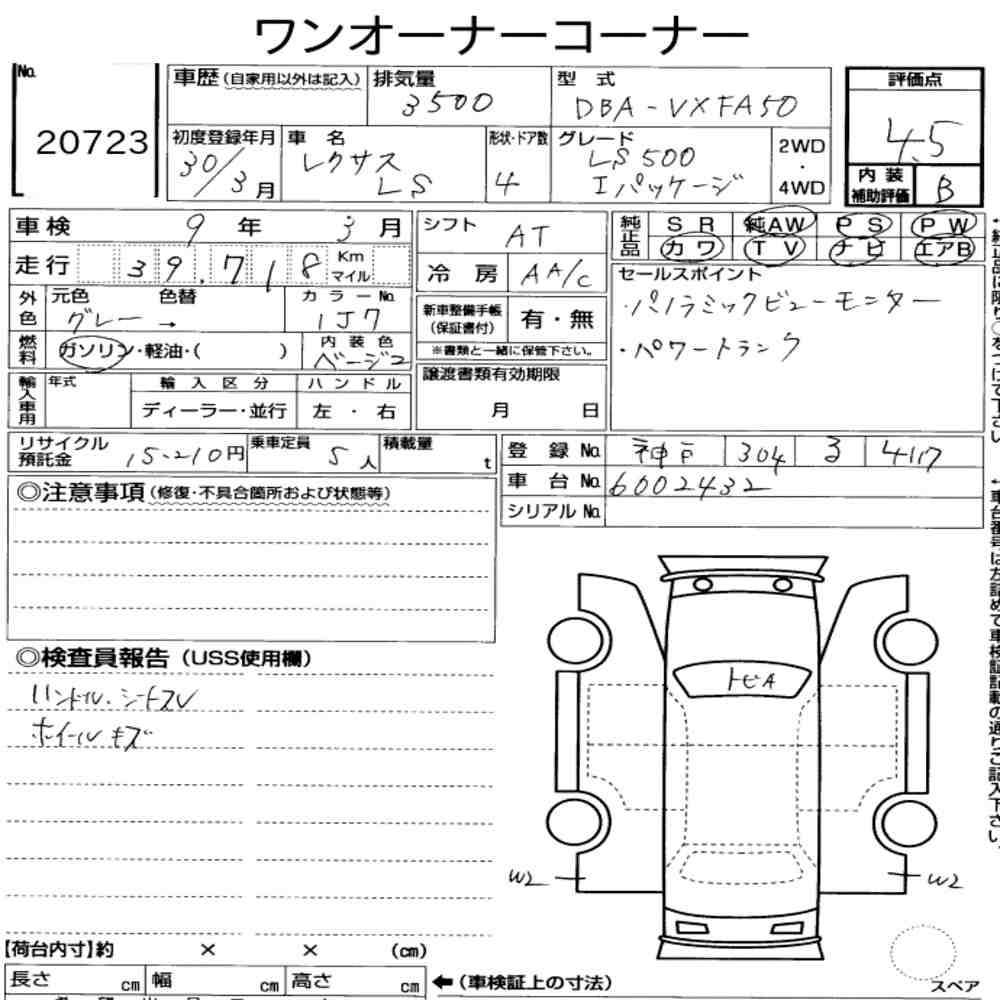 ワンオーナーコーナー
No. 20723
車歴(自家用以外は記入) 排気量 3500 型 式 DBA-VXFA50
評価点 4.5
初度登録年月 30/3月 車 名 レクサス LS 形状・ドア数 4 グレード LS500 Iパッケージ 2WD・4WD
内 装 補助評価 B
車検 9年 3月 シフト AT
純正品 SR 純AW PS PW
カワ TV ナビ エアB
走行 39.718 Km マイル 冷 房 AA/C
セールスポイント
・パノラミックビューモニター
・パワートランク
外色 元色 グレー → 色替 カラーNo. 1J7
新車整備手帳(保証書付) 有・無
燃料 ガソリン・軽油・( ) 内装色 ベージュ
※書類と一緒に保管下さい。
輸入車用 年式 輸入区分 ハンドル
ディーラー・並行 左・右
譲渡書類有効期限
月 日
リサイクル預託金 15.210円 乗車定員 5人 積載量 t
登 録 No. 神戸 304 る 417
車 台 No. 6002432
シリアル No.
◎注意事項(修復・不具合箇所および状態等)
◎検査員報告(USS使用欄)
ハンドル.シートスレ
ホイールキズ
トビA
W2
W2
【荷台内寸】約 × × (cm)
長さ cm 幅 cm 高さ cm
←(車検証上の寸法)
スペア